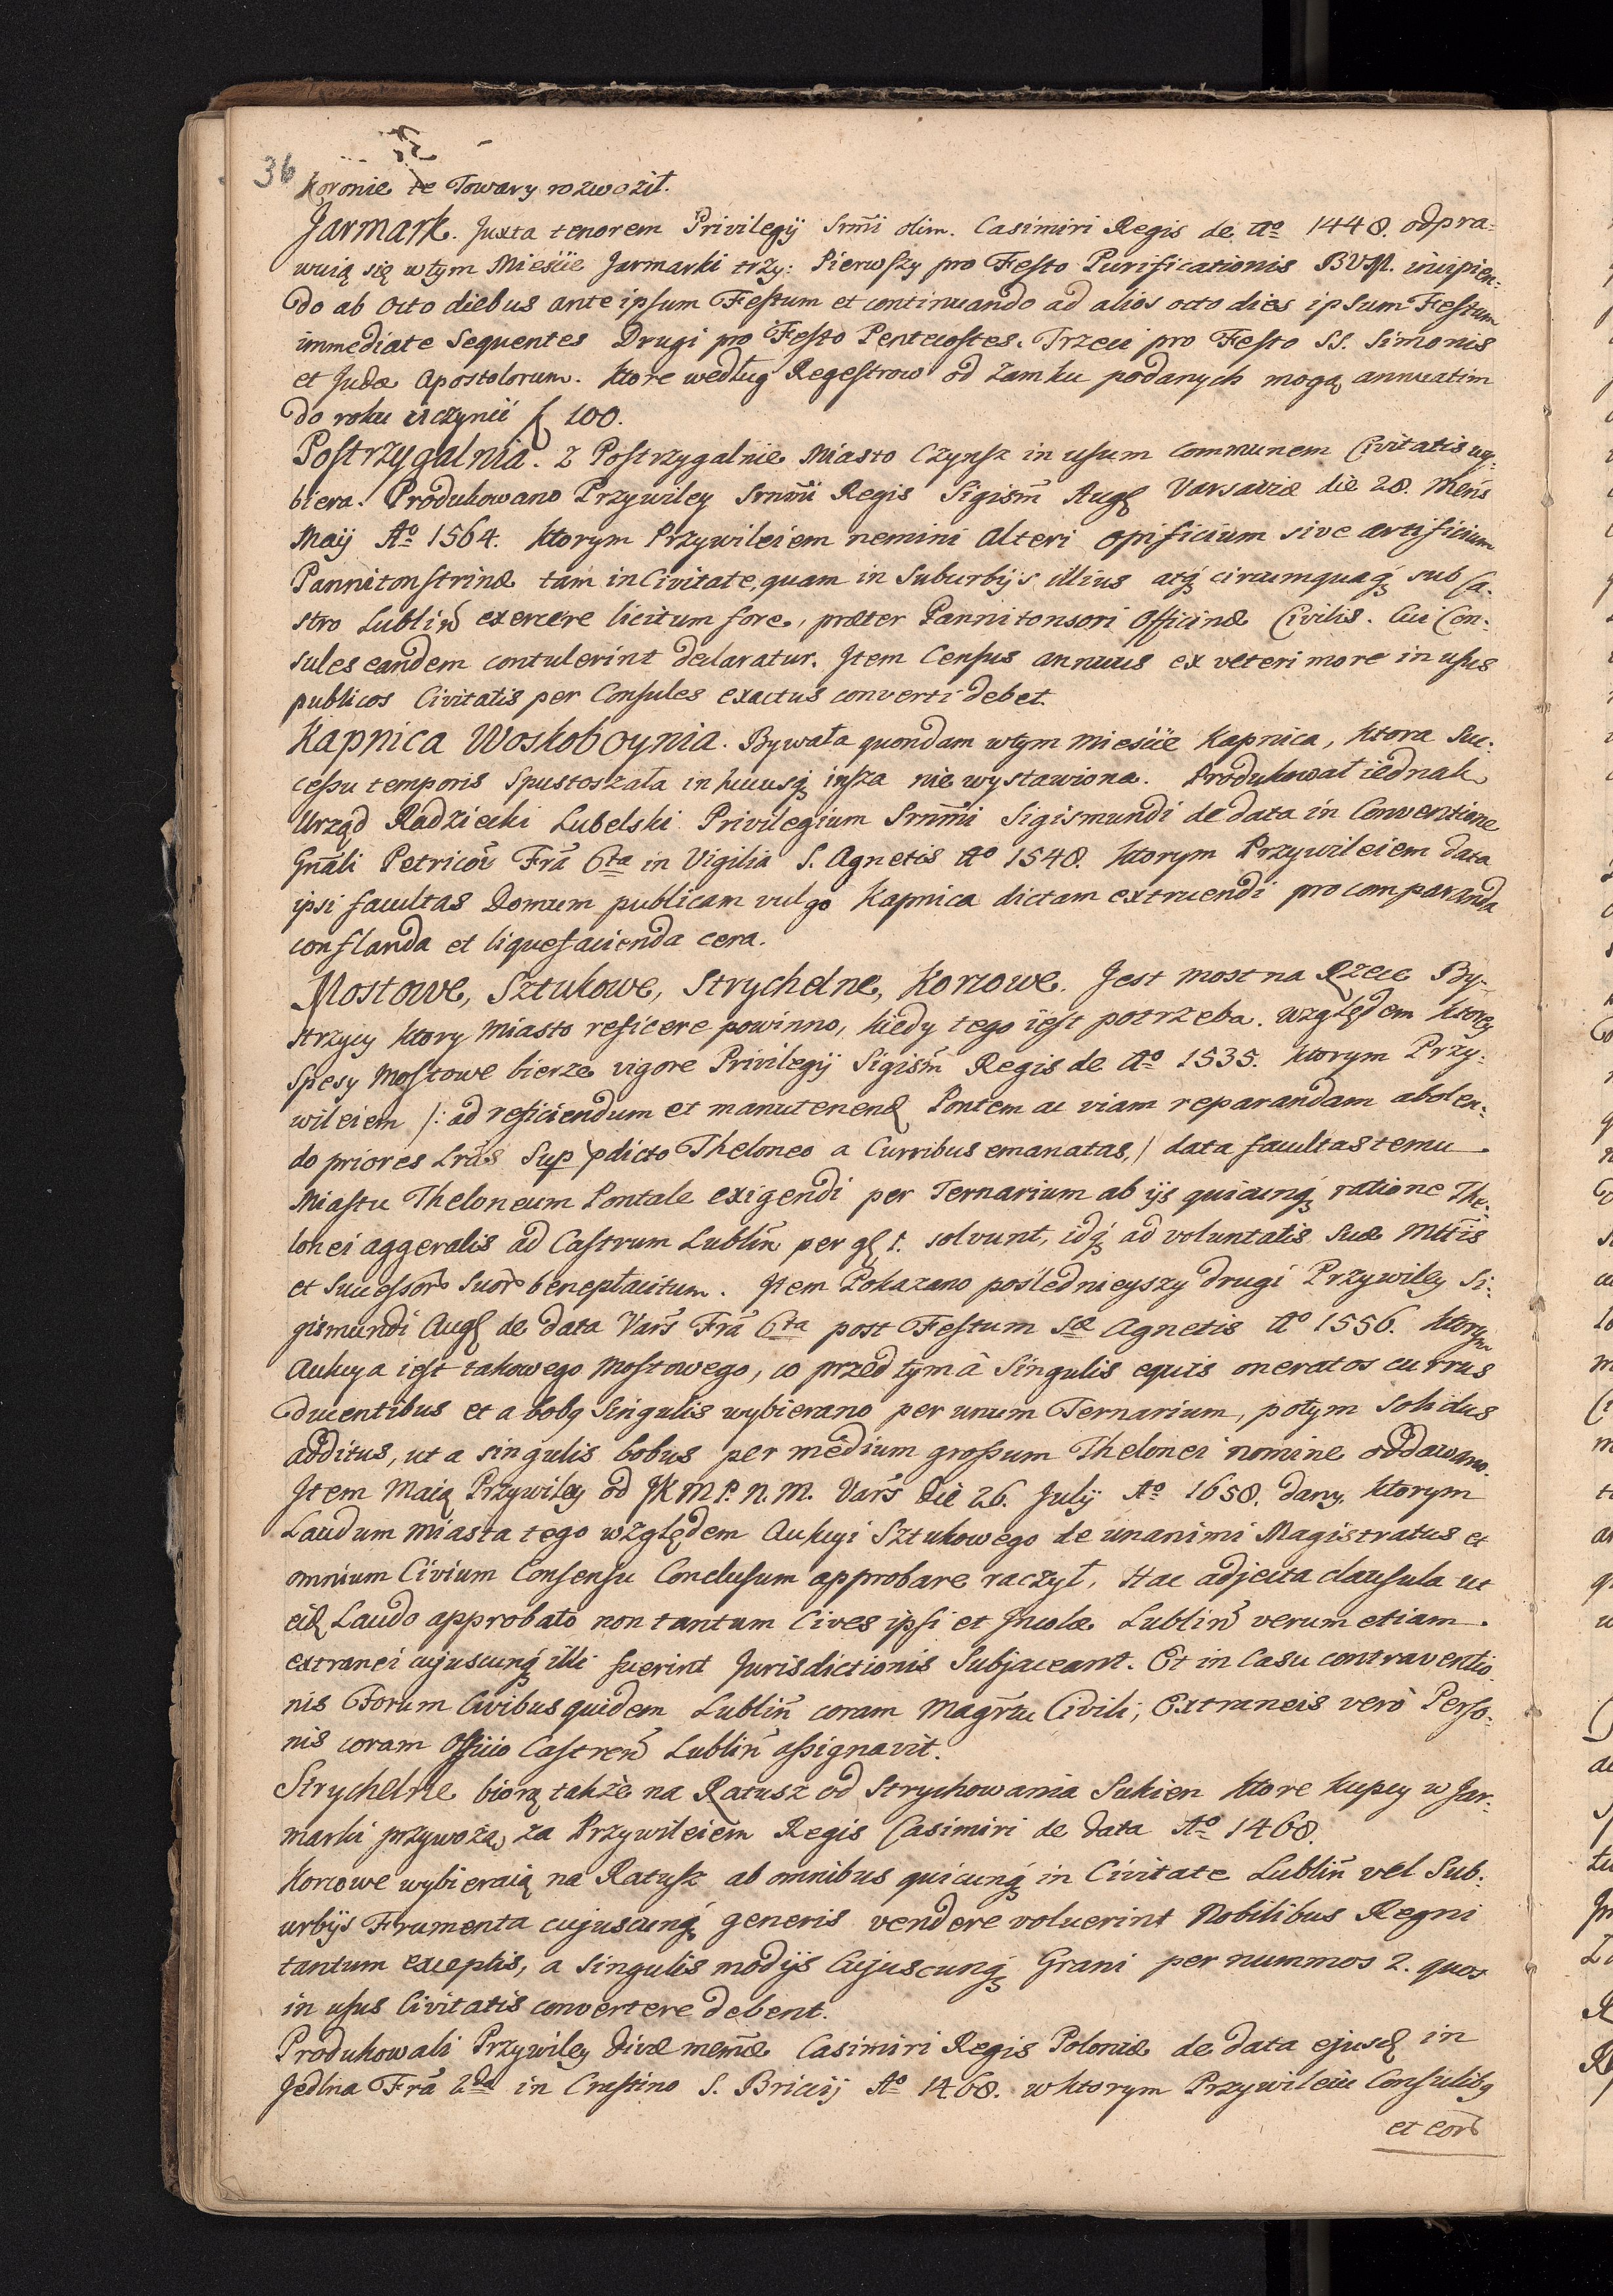 36
Koronie te Towary rozwoził.
Jarmark. Juxta tenorem Privilegÿ Srm̄i olim. Casimiri Regis de Aº 1448. odpra:
wuią się w tym Mieście Jarmarki trzy: Pierwszy pro Festo Purificationis BVM. incipien:
do ab octo diebus ante ipsum Festum et continuando ad alios octo dies ipsum Festum
immediate Sequentes Drugi pro Festo Pentecostes. Trzeci pro Festo SS. Simonis
et Judæ Apostolorum. Ktore według Regestrow od Zamku podanych mogą annuatim
do roku uczynić f 100.
Postrzygalnia. Z Postrzygalnie Miasto Czynsz in usum communem Civitatis wy:
biera. Produkowano Przywiley Srm̄i Regis Sigism̄ Aug Varsaviæ die 28. Mens
Maÿ Aº 1564. Ktorym Przywileiem nemini alteri opificium sive artificium
Pannitonstrinæ tam in Civitate, quam in Suburbÿs illius atq́ circumquaq́ sub Ca:
stro Lublin̄ exercere licitum fore, præter Pannitonsori Officinæ Civilis. Cui Con:
sules eandem contulerint declaratur. Item Census annuus ex veteri more in usus
publicos Civitatis per Consules exactus converti debet.
Kapnica Woskoboynia. Bywała quondam w tym Mieście Kapnica, Ktora Suc:
cessu temporis Spustoszała in hucusq́ insza nie wystawiona. Produkował iednak
Urząd Radziecki Lubelski Privilegium Srm̄i Sigismundi de data in Conventione
Gn̄ali Petricov̄ Frā 6ta in Vigilia S. Agnetis Aº 1548. Ktorym Przywileiem data
ipsi facultas Domum publicam vulgo Kapnica dictam extruendi pro comparanda
conflanda et liquefacienda cera.
Mostowe, Sztukowe, Strychelne, Korcowe. Jest most na Rzece By-
strzycy ktory Miasto reficere powinno, kiedy tego iest potrzeba. Względem ktorey
Spesy Mostowe bierze vigore Privilegÿ Sigism̄ Regis de Aº 1535. Ktorym Przy:
wileiem /: ad reficiendum et manutenend Pontem ac viam reparandam abolen:
do priores Lrās Sup pdicto Theloneo a Curribus emanatas,/ data facultas temu
Miastu Theloneum Pontale exigendi per Ternarium ab ÿs quicunq́ ratione The:
lonei aggeralis ad Castrum Lublin̄ per g 1. solvunt, idq́ ad voluntatis Suæ Mttis
et Successor̄ Suor̄ beneplacitum. Item Pokazano poślednieyszy drugi Przywiley Si:
gismundi Aug de data Vars̄ Frā 6ta post Festum Sæ Agnetis Aº 1556. Ktorym
Aukcya iest takowego Mostowego, co przed tym â Singulis equis oneratos currus
ducentibus et a bobq Singulis wybierano per unum Ternarium, potym Solidus
additus, ut a singulis bobus per medium grossum Thelonei nomine oddawano.
Item Maią Przywiley od JKMP.N.M. Vars̄ Die 26. Julÿ Aº 1658. dany, ktorym
Laudum Miasta tego względem Aukcyi Sztukowego de unanimi Magistratus et
omnium Civium Consensu Conclusum approbare raczył, Hac adjecta clausula ut
eid Laudo approbato non tantum Cives ipsi et Incolæ Lublin̄ verum etiam
extranei cujuscunq́ illi fuerint Jurisdictionis Subjaceant. Et in Casu contraventio
nis Forum Civibus quidem Lublin̄ coram Magr̄tu Civili, Extraneis verò Perso:
nis coram Officio Castren̄ Lublin̄ assignavit.
Strychelne biorą także na Ratusz od Strychowania Sukien ktore kupcy w Jar:
marki przywożą za Przywileiem Regis Casimiri de data Aº 1468.
Korcowe wybieraią na Ratusz ab omnibus quicunq́ in Civitate Lublin̄ vel Sub:
urbÿs Frumenta cujuscunq́ generis vendere voluerint Nobilibus Regni
tantum exceptis, a Singulis modÿs Cujuscunq́ Grani per nummos 2. quos
in usus Civitatis convertere debent.
Produkowali Przywiley Divæ mem̄æ Casimiri Regis Poloniæ de data ejusd in
Jedlna Frā 2da in Crastino S. Briccÿ Aº 1468. w ktorym Przywileiu Consulibq
et eor̄